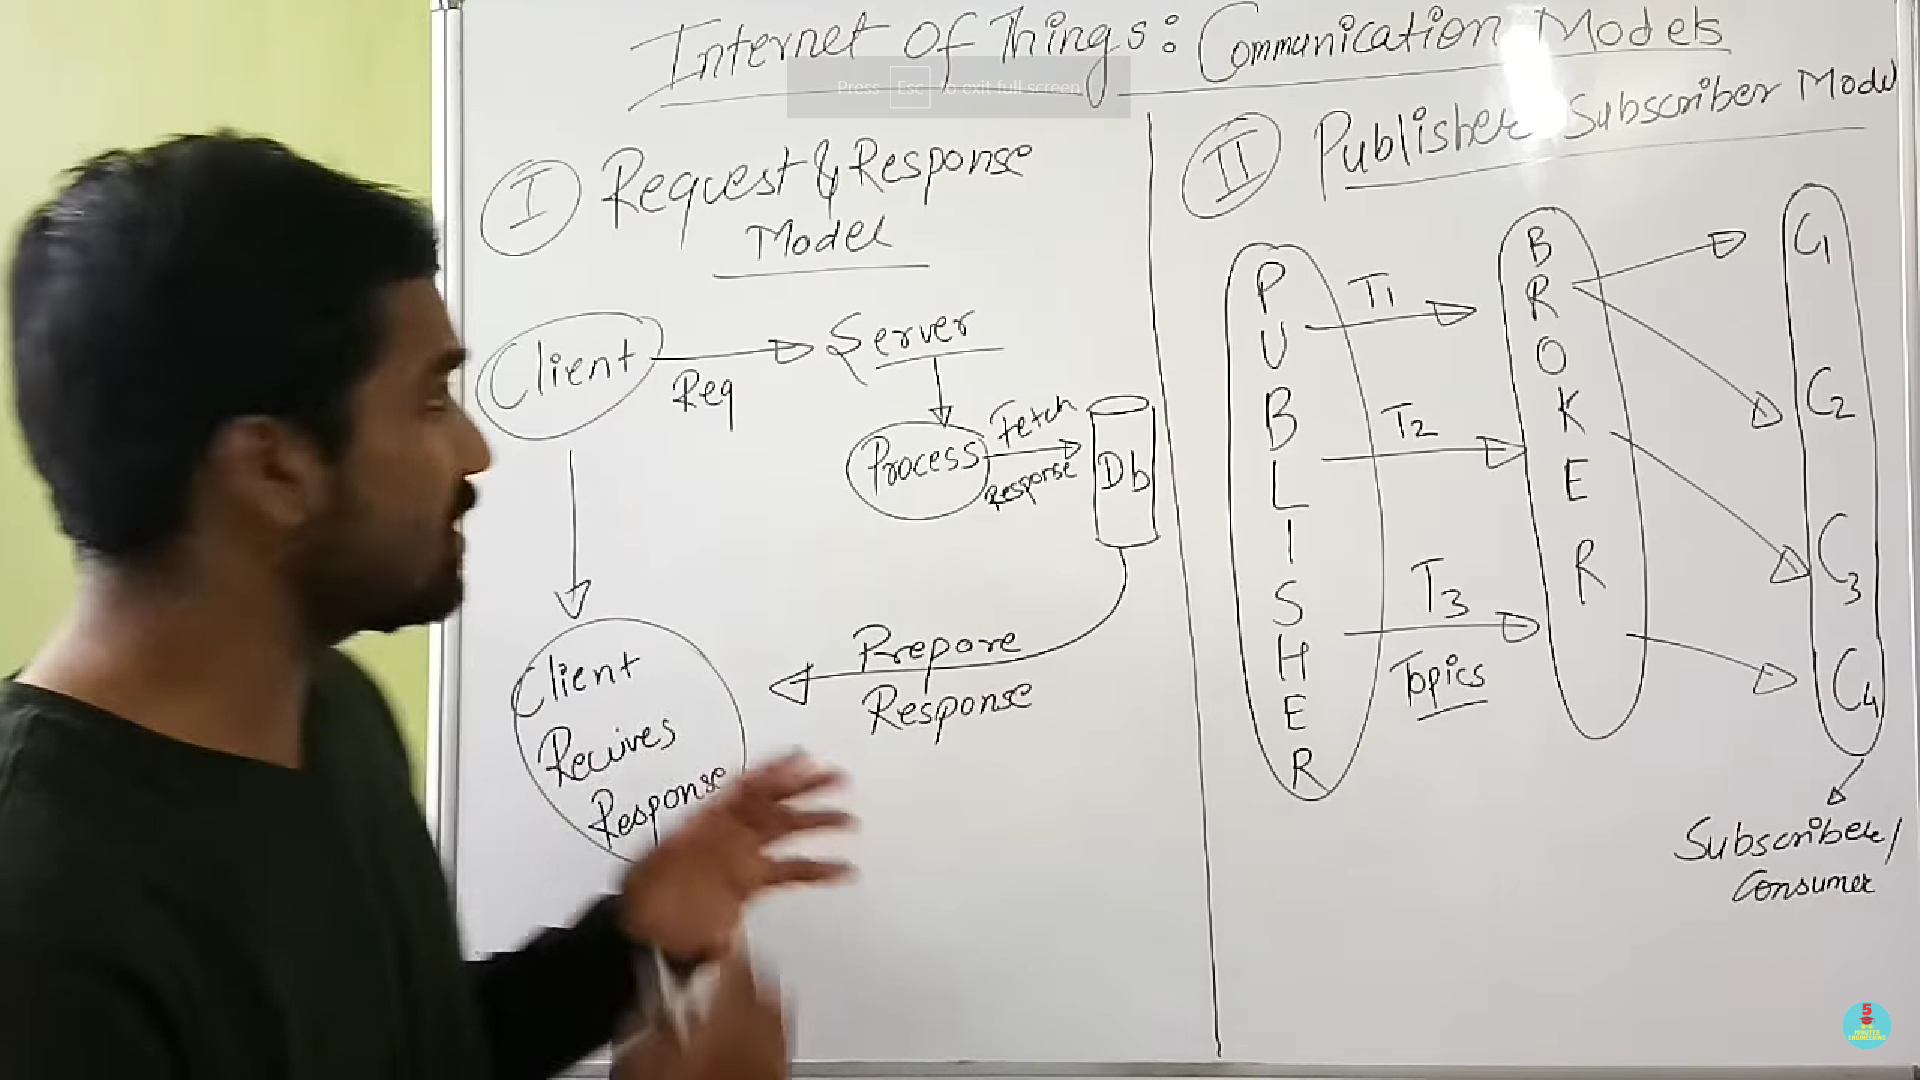 Internet Of Things: Communication Models
Press Esc to exit full screen
I Request & Response
Model
Client
Req
Server
Process
Fetch
Response
Db
Prepare
Response
Client
Recives
Response
II Publisher Subscriber Model
PUBLISHER
T1
T2
T3
Topics
BROKER
C1
C2
C3
C4
Subscriber/
Consumer
5
MINUTES
ENGINEERING